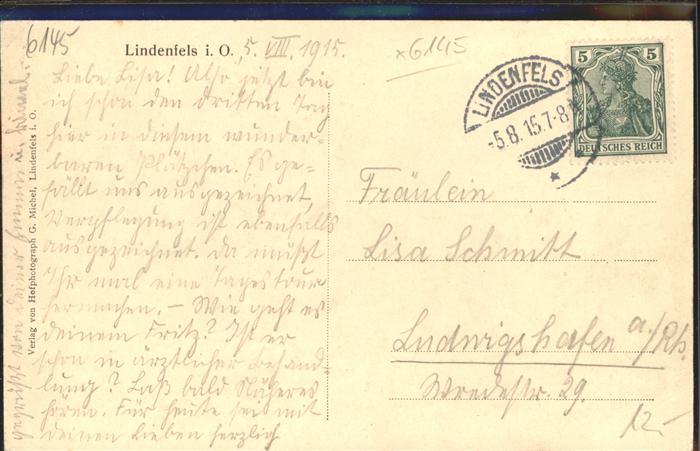 6145
Lindenfels i. O., 5. VIII. 1915.
x6145
Liebe Lisa! Also jetzt bin
ich schon den dritten Tag
hier in diesem wunder-
baren Plätzchen. Es ge-
fällt uns ausgezeichnet,
Verpflegung ist ebenfalls
ausgezeichnet. Da müßt
Ihr mal eine Tagestour
hermachen. – Wie geht es
deinem Fritz? Ist er
schon in ärztlicher Behand-
lung? Laß bald Näheres
hören. Für heute sei mit
deinen Lieben herzlich
gegrüßt von deiner
Verlag von Hofphotograph G. Michel, Lindenfels i. O.
LINDENFELS
-5.8.15.7-8
5 5
DEUTSCHES REICH
Fräulein
Lisa Schmitt
Ludwigshafen a/Rh.
Wredestr. 29.
12.-